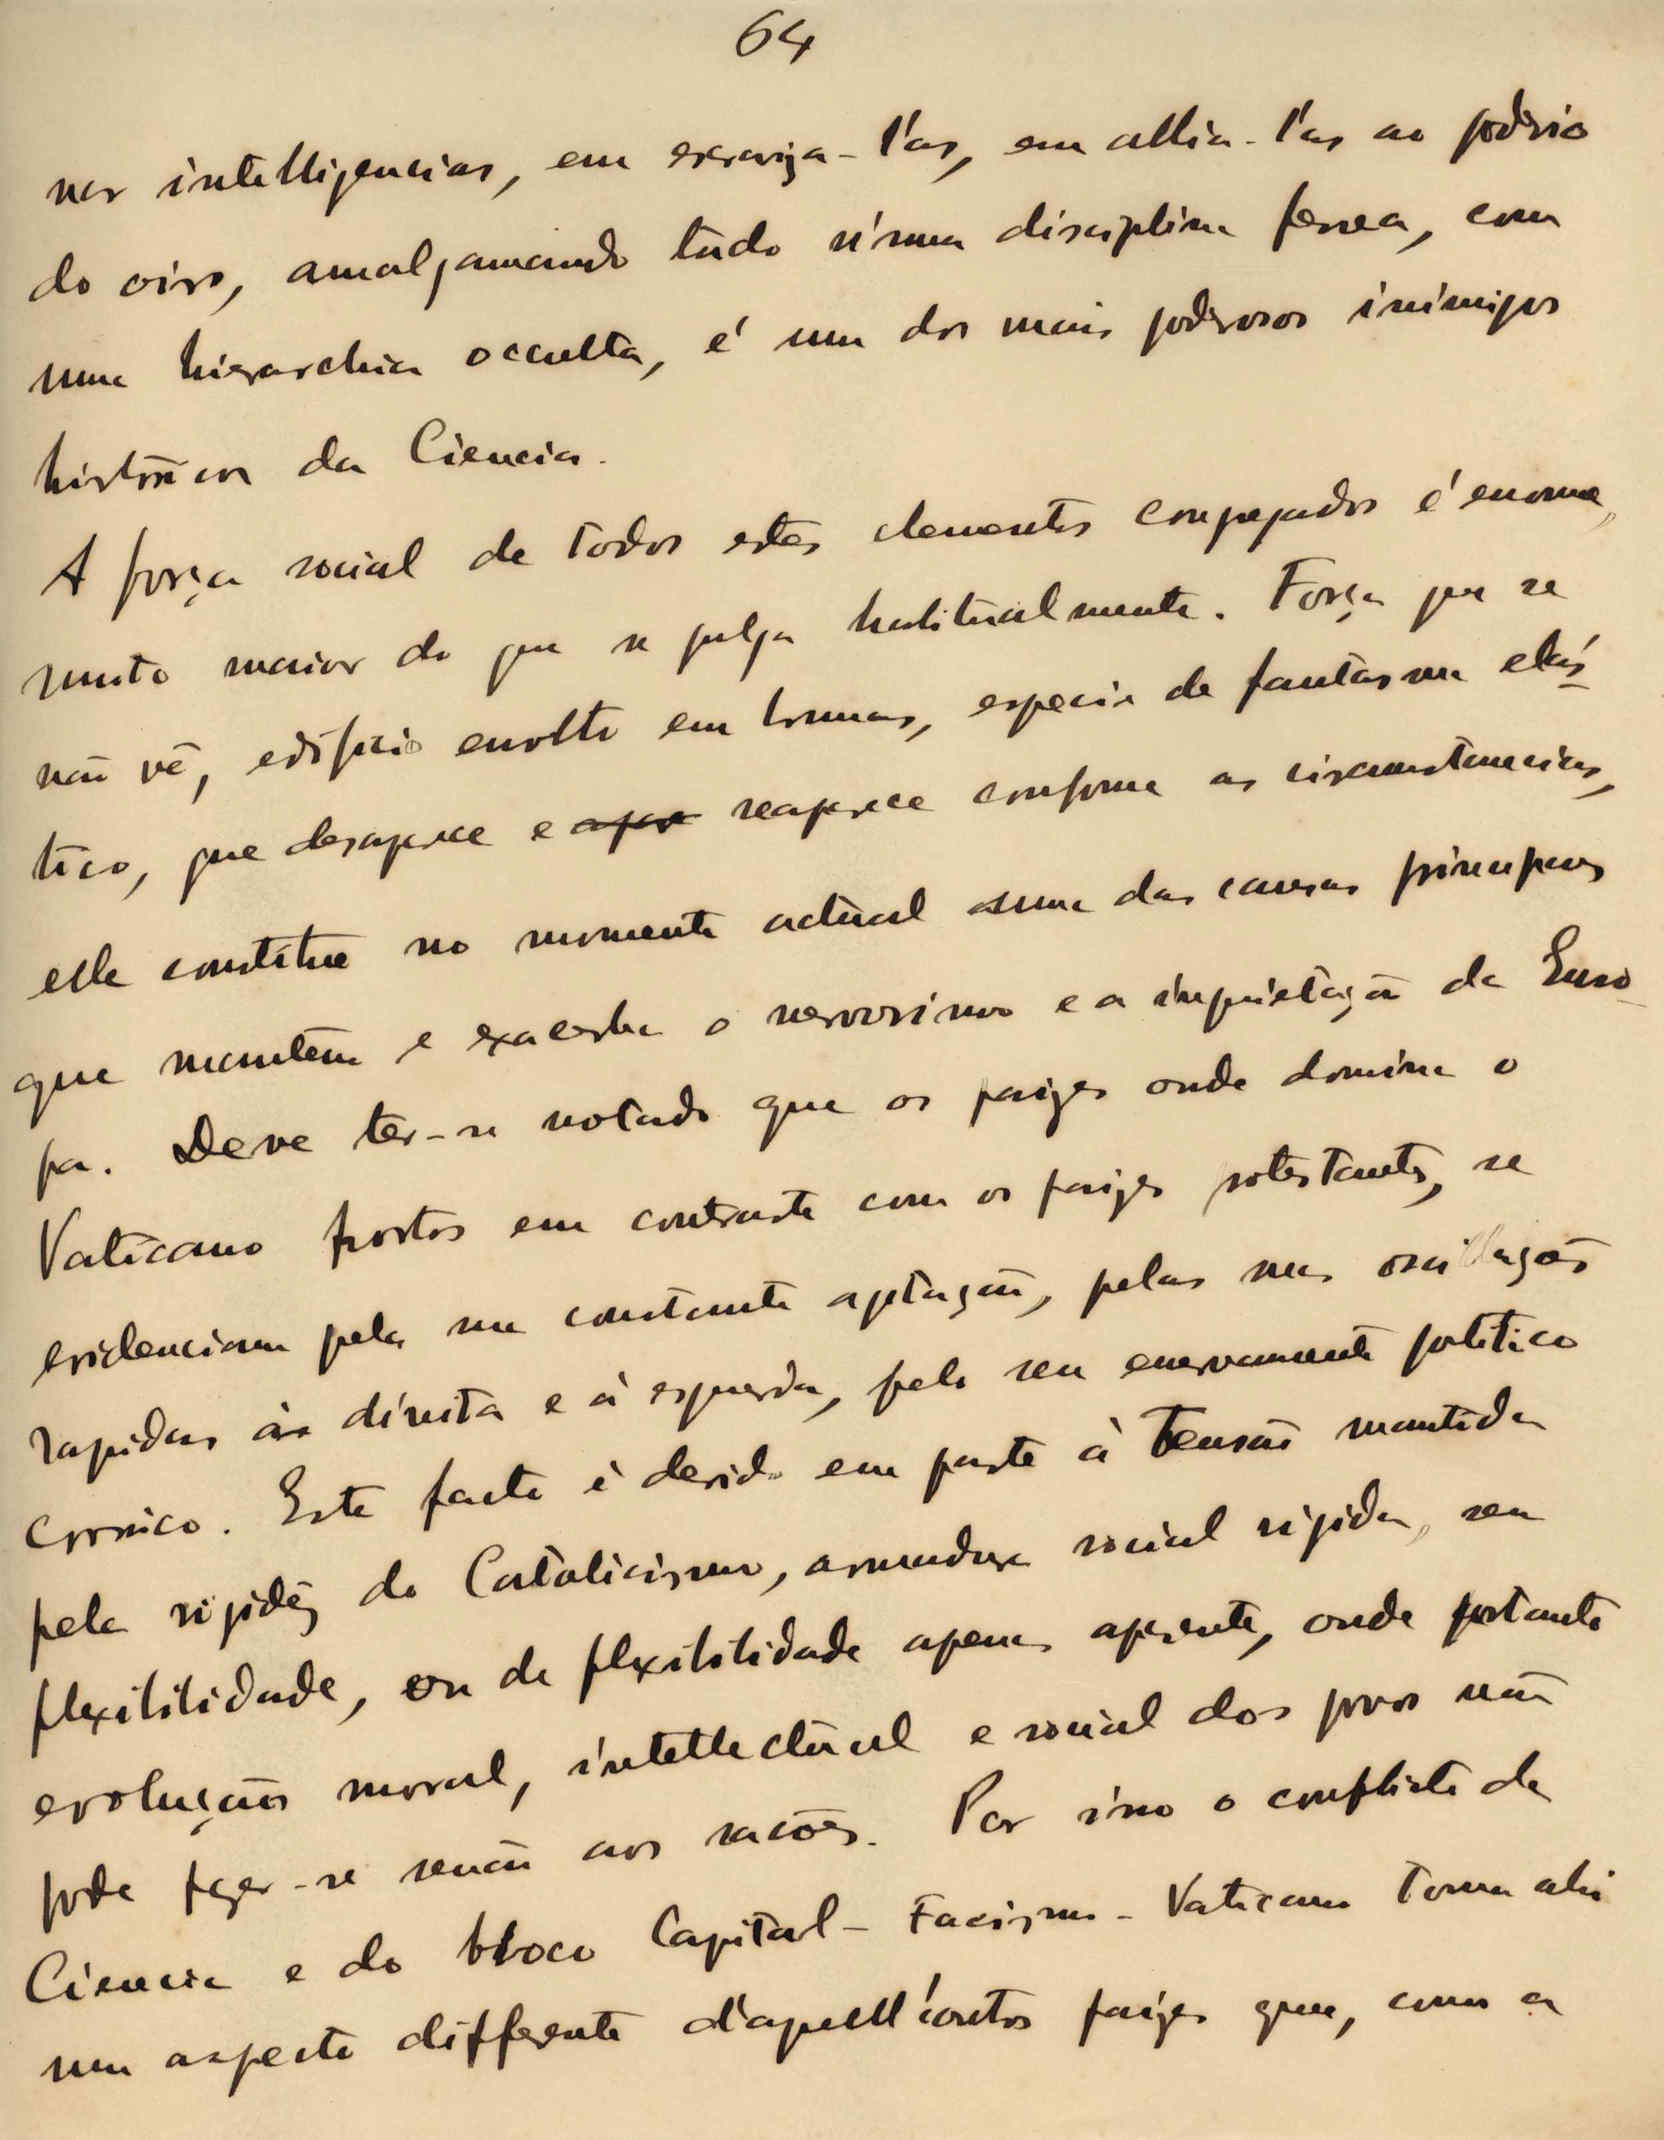 64
nar intelligencias, em escraviza-l'as, em allia-l'as ao poderio
do oiro, amalgamando tudo n'uma disciplina ferrea, com
uma hierarchia occulta, é um dos mais poderosos inimigos
históricos da Ciencia.
A força social de todos estes elementos congregados é enorme,
muito maior do que se julga habitualmente. Força que se
não vê, edificio envolto em brumas, especie de fantasma elás
tico, que desaparece e apar reaparece conforme as circumstancias,
elle constitue no momento actual uma das causas principaes
que mantêm e exacerba o nervosismo e a inquietação da Euro
pa. Deve ter-se notado que os paizes onde domina o
Vaticano postos em contraste com os paizes protestantes, se
evidenciam pela sua constante agitação, pelas suas oscillações
rapidas ás direita e á esquerda, pelo seu enervamento politico
cronico. Este facto é devido em parte à tensão mantida
pela rigidêz do Catolicismo, armadura social rigida, sem
flexibilidade, ou de flexibilidade apenas aparente, onde portanto
evolução moral, intellectual e social dos povos não
pode fazer-se senão aos sacões. Por isso o conflicto da
Ciencia e do bloco Capital-Facismo-Vaticano toma ahi
um aspecto differente d'aquell'outros paizes que, com a